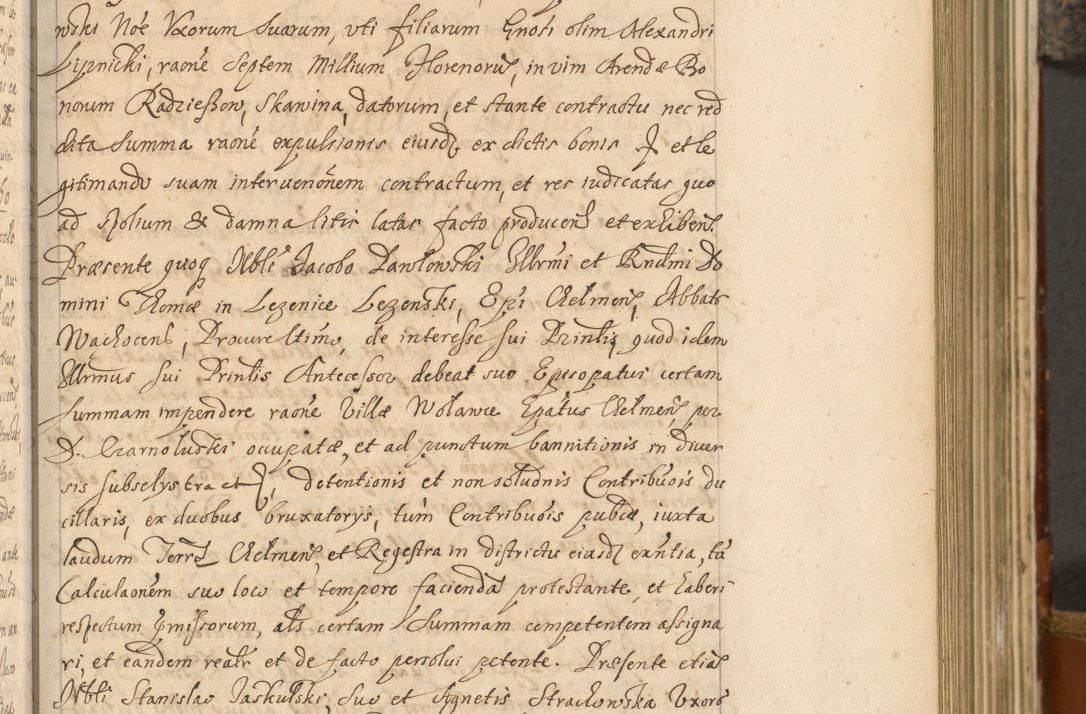 wski Noe Uxorum suarum, uti filiarum Gnosi olim Alexandri
Lipnicki, raone septem Millium Florenoru, in vim Arendæ Bo
norum Radzieszow, Skawina, datorum, et stante contractu nec red
dita summa raone expulsionis eiusd ex dictis bonis et le
gitimando suam interuenonem contractum, et res iudicatas quo
ad spolium & damna litis latas facto producen et exhiben.
Præsente quoq Nbli Jacobo Pawlowski Illrmi et Rndmi Do
mini Thomæ in Lezenice Lezenski, Epi Chelmen, Abbats
Wachocens, Procure ltimo, de interesse sui Prinlis, quod idem
Illrmus sui Prinlis Antecessor debeat suo Episopatui certam
summam impendere raone Villæ Wolawce Epatus Chelmen, per
D. Czarnoluski ocupatæ, et ad punctum bannitionis in diver
sis subselys tra et, detentionis et non solutonis Contribuois du
cillaris, ex duobus bruxatorys, tum Contribuois publcæ, iuxta
laudum Terræ Chelmen, et Regestra in districtu eiusd exntia, tu
Calculaonem suo loco et tempore faciendâ protestante, et haberi
respectum pmissorum, als certam summam competentem assigna
ri, et eandem realr et de facto persolui petente. Præsente etia
Nbli Stanislao Jaskulski, suo et Agnetis Strachowska Uxoris